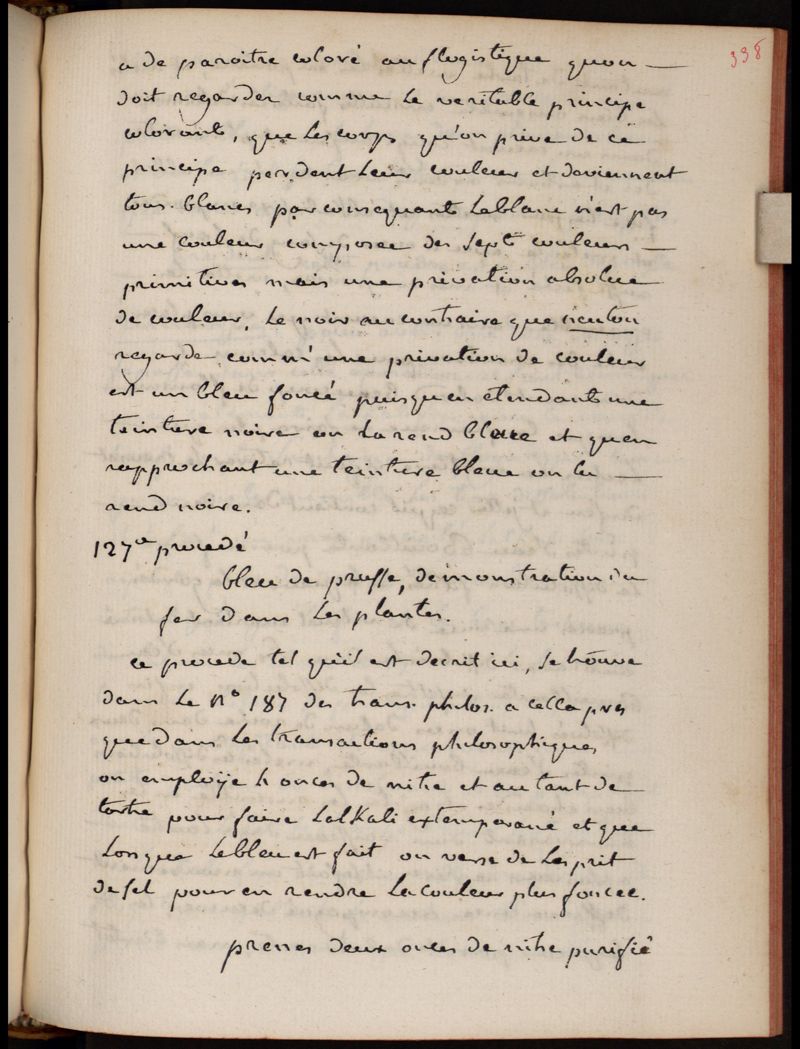 338
a de paroitre coloré au flogistique quon
doit regarder comme le veritable principe
colorant, que les corps qu'on prive de ce
principe perdent leur couleur et deviennent
tous blancs par consequants leblanc n'est pas
une couleur composee des sept couleurs
primitives mais une privation absolue
de couleur, le noir au contraire que neuton
regarde comm'une privation de couleur
est un bleu foncé puisquen etendants une
teinture noire on la rend bleue et quen
rapprochant une teinture bleue on la
rend noire.
127e procedé
bleu de prusse, demonstration du
fer dans les plantes.
ce procede tel quil est decrit ici, se trouve
dans le No 187 des trans. philos. a cella pres
que dans les transactions philosophiques
on employe 4 onces de nitre et autant de
tartre pour faire lalkali extemporané et que
lorsque lebleu est fait on verse de lesprit
de sel pour en rendre la couleur plus foncee.
prenes deux onces de nitre purifié